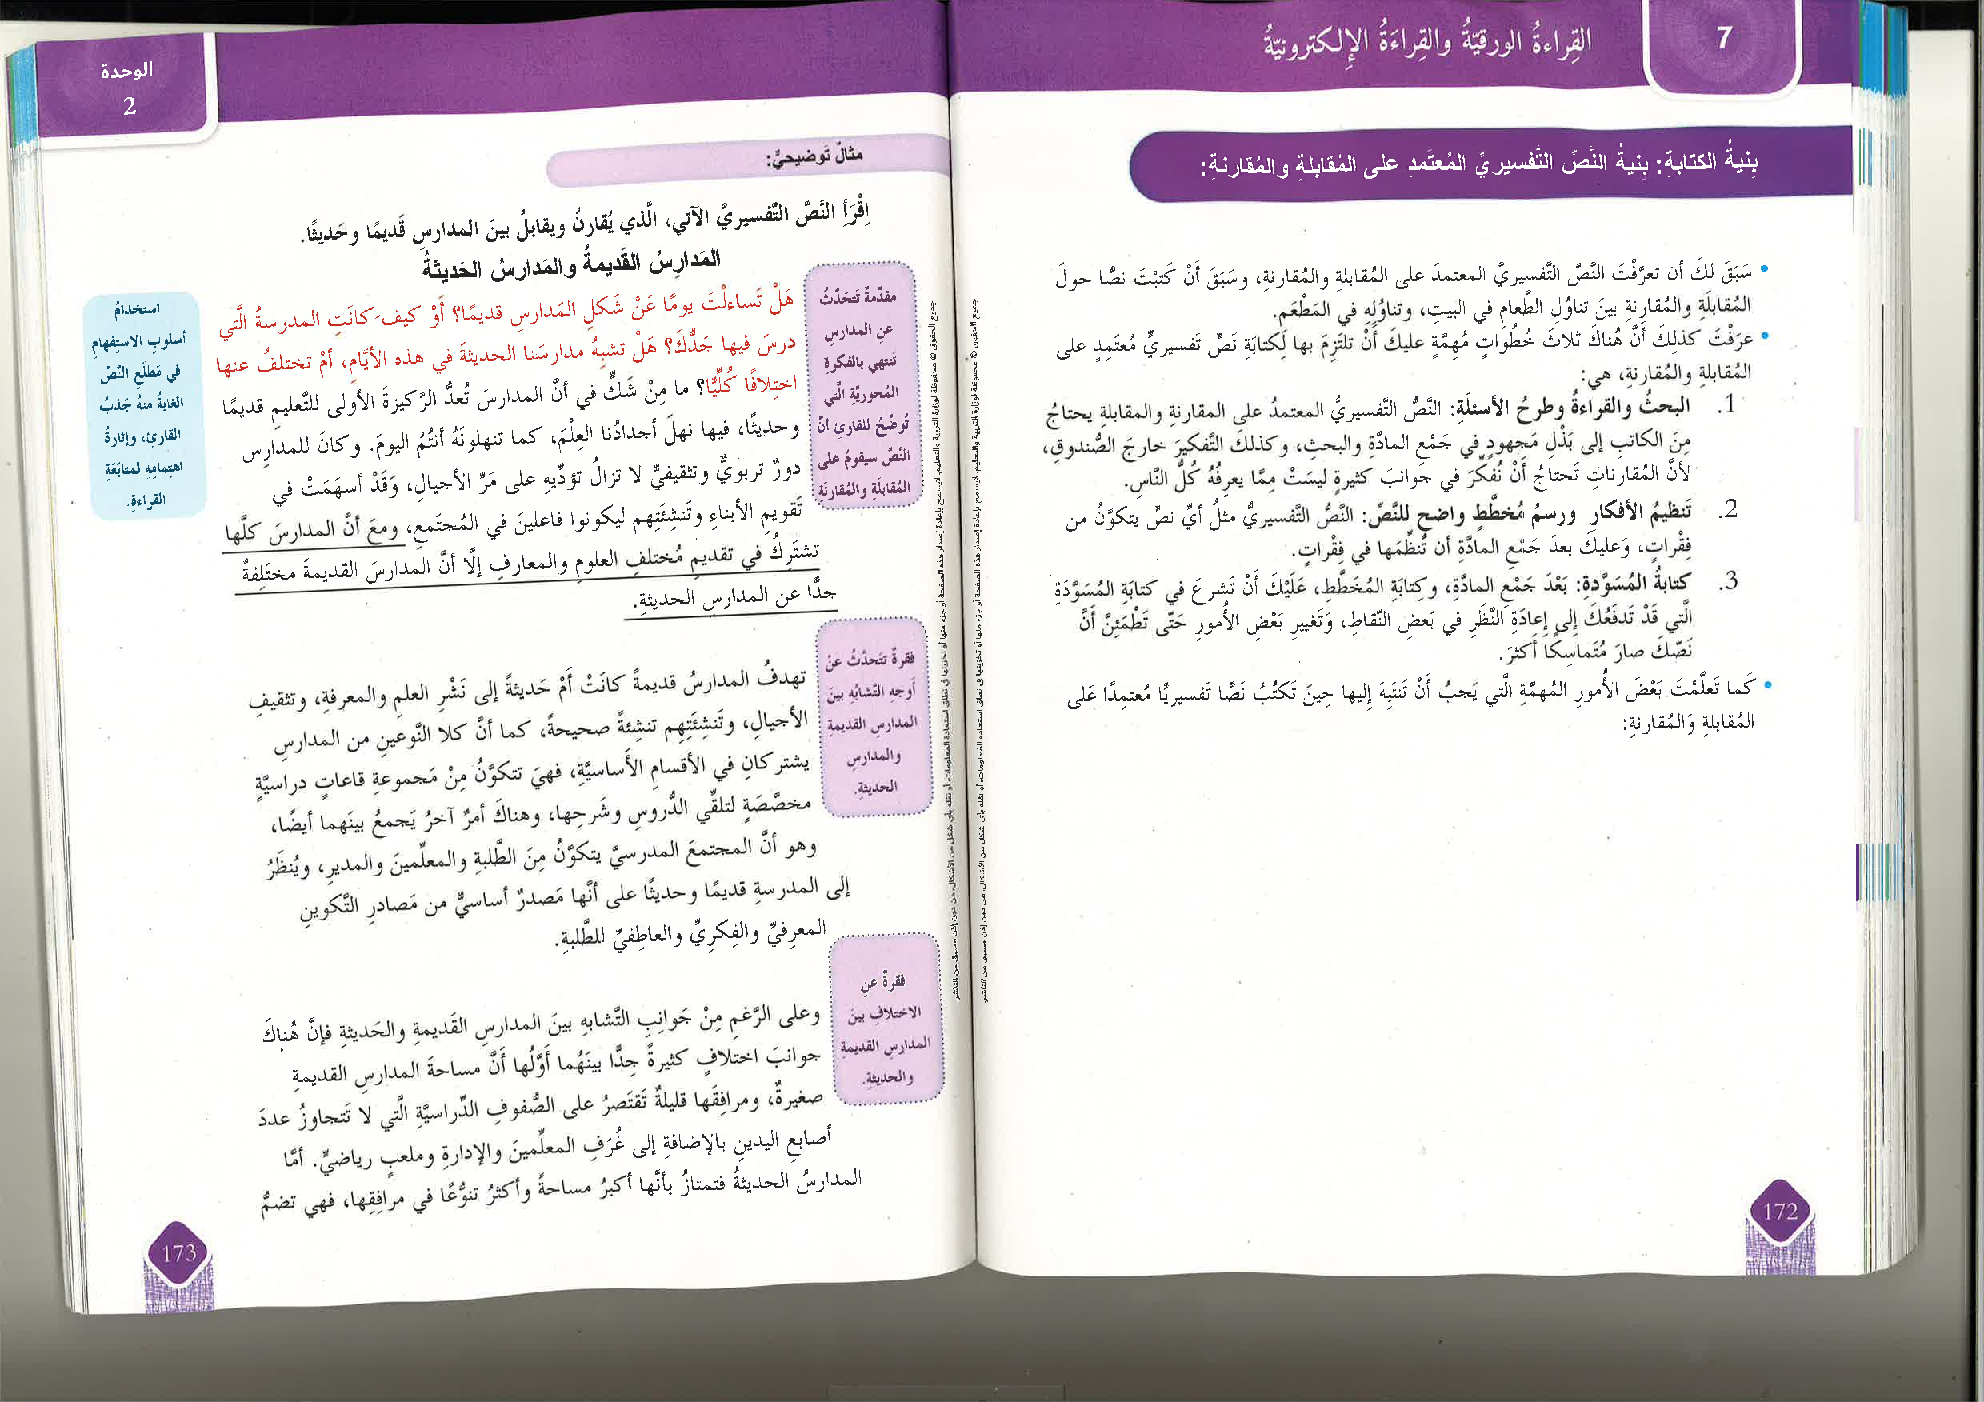 7
القِراءةُ الورقيّةُ والقِراءَةُ الإِلكترونيّةُ
بِنيةُ الكتابةِ: بِنيةُ النَّصِّ التَّفسيريِّ المُعتَمدِ على المُقابلةِ والمُقارنةِ:
• سَبَقَ لكَ أن تعرَّفْتَ النَّصَّ التَّفسيريَّ المعتمدَ على المُقابلةِ والمُقارنةِ، وسَبَقَ أَنْ كَتبْتَ نصًّا حولَ
المُقابلَةِ والمُقارنةِ بينَ تناوُلِ الطَّعامِ في البيتِ، وتناوُلِهِ في المَطْعَمِ.
• عرَفْتَ كذلكَ أَنَّ هُناكَ ثلاثَ خُطُواتٍ مُهِمَّةٍ عليكَ أَنْ تلتَزِمَ بها لِكتابَةِ نَصٍّ تَفسيريٍّ مُعتَمِدٍ على
المُقابلةِ والمُقارنةِ، هي:
1. البحثُ والقراءةُ وطرحُ الأسئلَةِ: النَّصُّ التَّفسيريُّ المعتمدُ على المقارنةِ والمقابلةِ يحتاجُ
مِنَ الكاتبِ إلى بَذْلِ مَجهودٍ في جَمْعِ المادَّةِ والبحثِ، وكذلكَ التَّفكيرَ خارجَ الصُّندوقِ،
لأنَّ المُقارناتِ تَحتاجُ أَنْ نُفكّرَ في جوانبَ كثيرةٍ ليسَتْ مِمَّا يعرِفُهُ كُلُّ النَّاسِ.
2. تَنظيمُ الأفكارِ ورسمُ مُخطَّطٍ واضحٍ للنَّصِّ: النَّصُّ التَّفسيريُّ مثلُ أيِّ نصٍّ يتكوَّنُ من
فِقْراتٍ، وَعليكَ بعدَ جَمْعِ المادَّةِ أن تُنظِّمَها في فِقْراتٍ.
3. كتابةُ المُسَوَّدةِ: بَعْدَ جَمْعِ المادَّةِ، وكِتابَةِ المُخَطَّطِ، عَلَيْكَ أَنْ تَشرعَ في كتابَةِ المُسَوَّدَةِ
الَّتي قَدْ تَدفَعُكَ إلى إعادَةِ النَّظَرِ في بَعضِ النِّقاطِ، وَتَغييرِ بَعْضِ الأُمورِ حَتّى تَطْمَئِنَّ أَنَّ
نَصَّكَ صارَ مُتَماسِكًا أَكثرَ.
• كَما تَعلَّمْتَ بَعْضَ الأُمورِ المُهمَّةِ الَّتي يَجبُ أَنْ تَنتَبِهَ إليها حِينَ تَكتُبُ نَصًّا تَفسيريًّا مُعتمِدًا عَلى
المُقابلةِ وَالمُقارنةِ:
172
الوحدة
2
مثالٌ تَوضيحيٌّ:
اِقْرَأِ النَّصَّ التَّفسيريَّ الآتي، الَّذي يُقارنُ ويقابلُ بينَ المدارسِ قَديمًا وحَديثًا.
المَدارِسُ القَديمةُ والمَدارسُ الحَديثةُ
هَلْ تَساءلْتَ يومًا عَنْ شَكلِ المَدارسِ قديمًا؟ أَوْ كيف كانَتِ المدرسةُ الَّتي
درسَ فيها جَدُّكَ؟ هَلْ تشبهُ مدارسَنا الحديثةَ في هذه الأيّامِ، أمْ تختلفُ عنها
اختِلافًا كُلِّيًّا؟ ما مِنْ شَكٍّ في أنَّ المدارسَ تُعدُّ الرَّكيزةَ الأولى للتَّعليمِ قديمًا
وحديثًا، فيها نهلَ أجدادُنا العِلْمَ، كما تنهلونَهُ أنتُمُ اليومَ. وكانَ للمدارسِ
دورٌ تربويٌّ وتثقيفيٌّ لا تزالُ تؤدِّيهِ على مَرِّ الأجيالِ، وَقَدْ أسهَمَتْ في
تَقويمِ الأبناءِ وتَنشئَتِهم ليكونوا فاعلينَ في المُجتَمعِ، ومعَ أنَّ المدارسَ كلَّها
تشتَرِكُ في تقديمِ مُختلفِ العلومِ والمعارفِ إلّا أنَّ المدارسَ القديمةَ مختَلِفةٌ
جدًّا عن المدارسِ الحديثةِ.
مقدّمةٌ تتحَدّثُ
عنِ المدارسِ
تَنتهي بالفكرةِ
المُحوريّةِ الَّتي
تُوضّحُ للقارئِ أنَّ
النّصَّ سيقومُ على
المُقابلَةِ والمُقارنَةِ
استخدامُ
أسلوبِ الاستِفهامِ
في مَطلَعِ النّصِّ
الغايةُ منهُ جَذبُ
القارئِ، وإثارةُ
اهتمامِهِ لمتابَعَةِ
القراءةِ.
تهدفُ المدارسُ قديمةً كانَتْ أَمْ حَديثةً إلى نَشْرِ العلمِ والمعرفةِ، وتثقيفِ
الأجيالِ، وتَنشِئَتِهِم تنشِئةً صحيحةً، كما أنَّ كلا النَّوعينِ من المدارسِ
يشتركانِ في الأقسامِ الأَساسيَّةِ، فهيَ تتكوَّنُ مِنْ مَجموعةِ قاعاتٍ دراسيَّةٍ
مخصَّصَةٍ لتلقِّي الدُّروسِ وشَرحِها، وهناكَ أمرٌ آخرُ يَجمعُ بينَهما أيضًا،
وهو أنَّ المجتمعَ المدرسيَّ يتكوَّنُ مِنَ الطَّلبةِ والمعلِّمينَ والمديرِ، ويُنظَرُ
إلى المدرسةِ قديمًا وحديثًا على أنَّها مَصدرٌ أساسيٌّ من مَصادرِ التَّكوينِ
المعرِفيِّ والفِكريِّ والعاطِفيِّ للطَّلبةِ.
فقرةٌ تتَحدّثُ عنْ
أوجهِ التّشابُهِ بينَ
المدارسِ القديمةِ
والمدارسِ
الحديثةِ.
وعلى الرَّغمِ مِنْ جَوانِبِ التَّشابهِ بينَ المدارسِ القَديمةِ والحَديثةِ فإنَّ هُناكَ
جوانبَ اختلافٍ كثيرةً جدًّا بينَهُما أَوَّلُها أَنَّ مساحةَ المدارسِ القديمةِ
صغيرةٌ، ومرافِقَها قليلةٌ تَقتَصرُ على الصُّفوفِ الدِّراسيَّةِ الَّتي لا تَتجاوزُ عددَ
أصابعِ اليدينِ بالإضافةِ إلى غُرَفِ المعلِّمينَ والإدارةِ وملعبٍ رياضيٍّ. أمَّا
المدارسُ الحديثةُ فتمتازُ بأنَّها أكبرُ مساحةً وأكثرُ تنوُّعًا في مرافِقِها، فهي تضمُّ
فقرةٌ عنِ
الاختلافِ بينَ
المدارسِ القديمةِ
والحديثةِ.
173